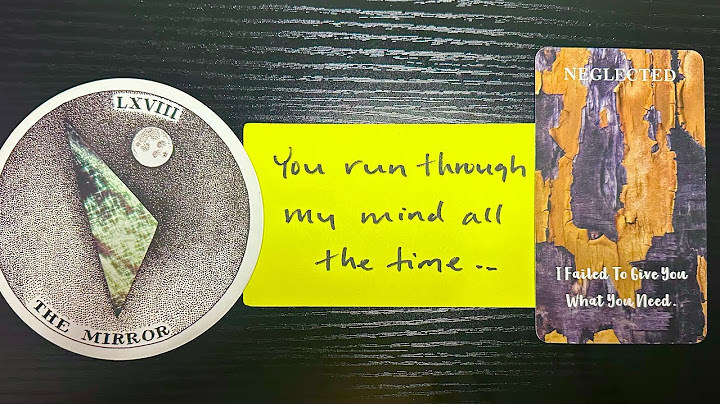 LXVIII
THE MIRROR
You run through
my mind all
the time..
NEGLECTED
I Failed To Give You
What You Need.